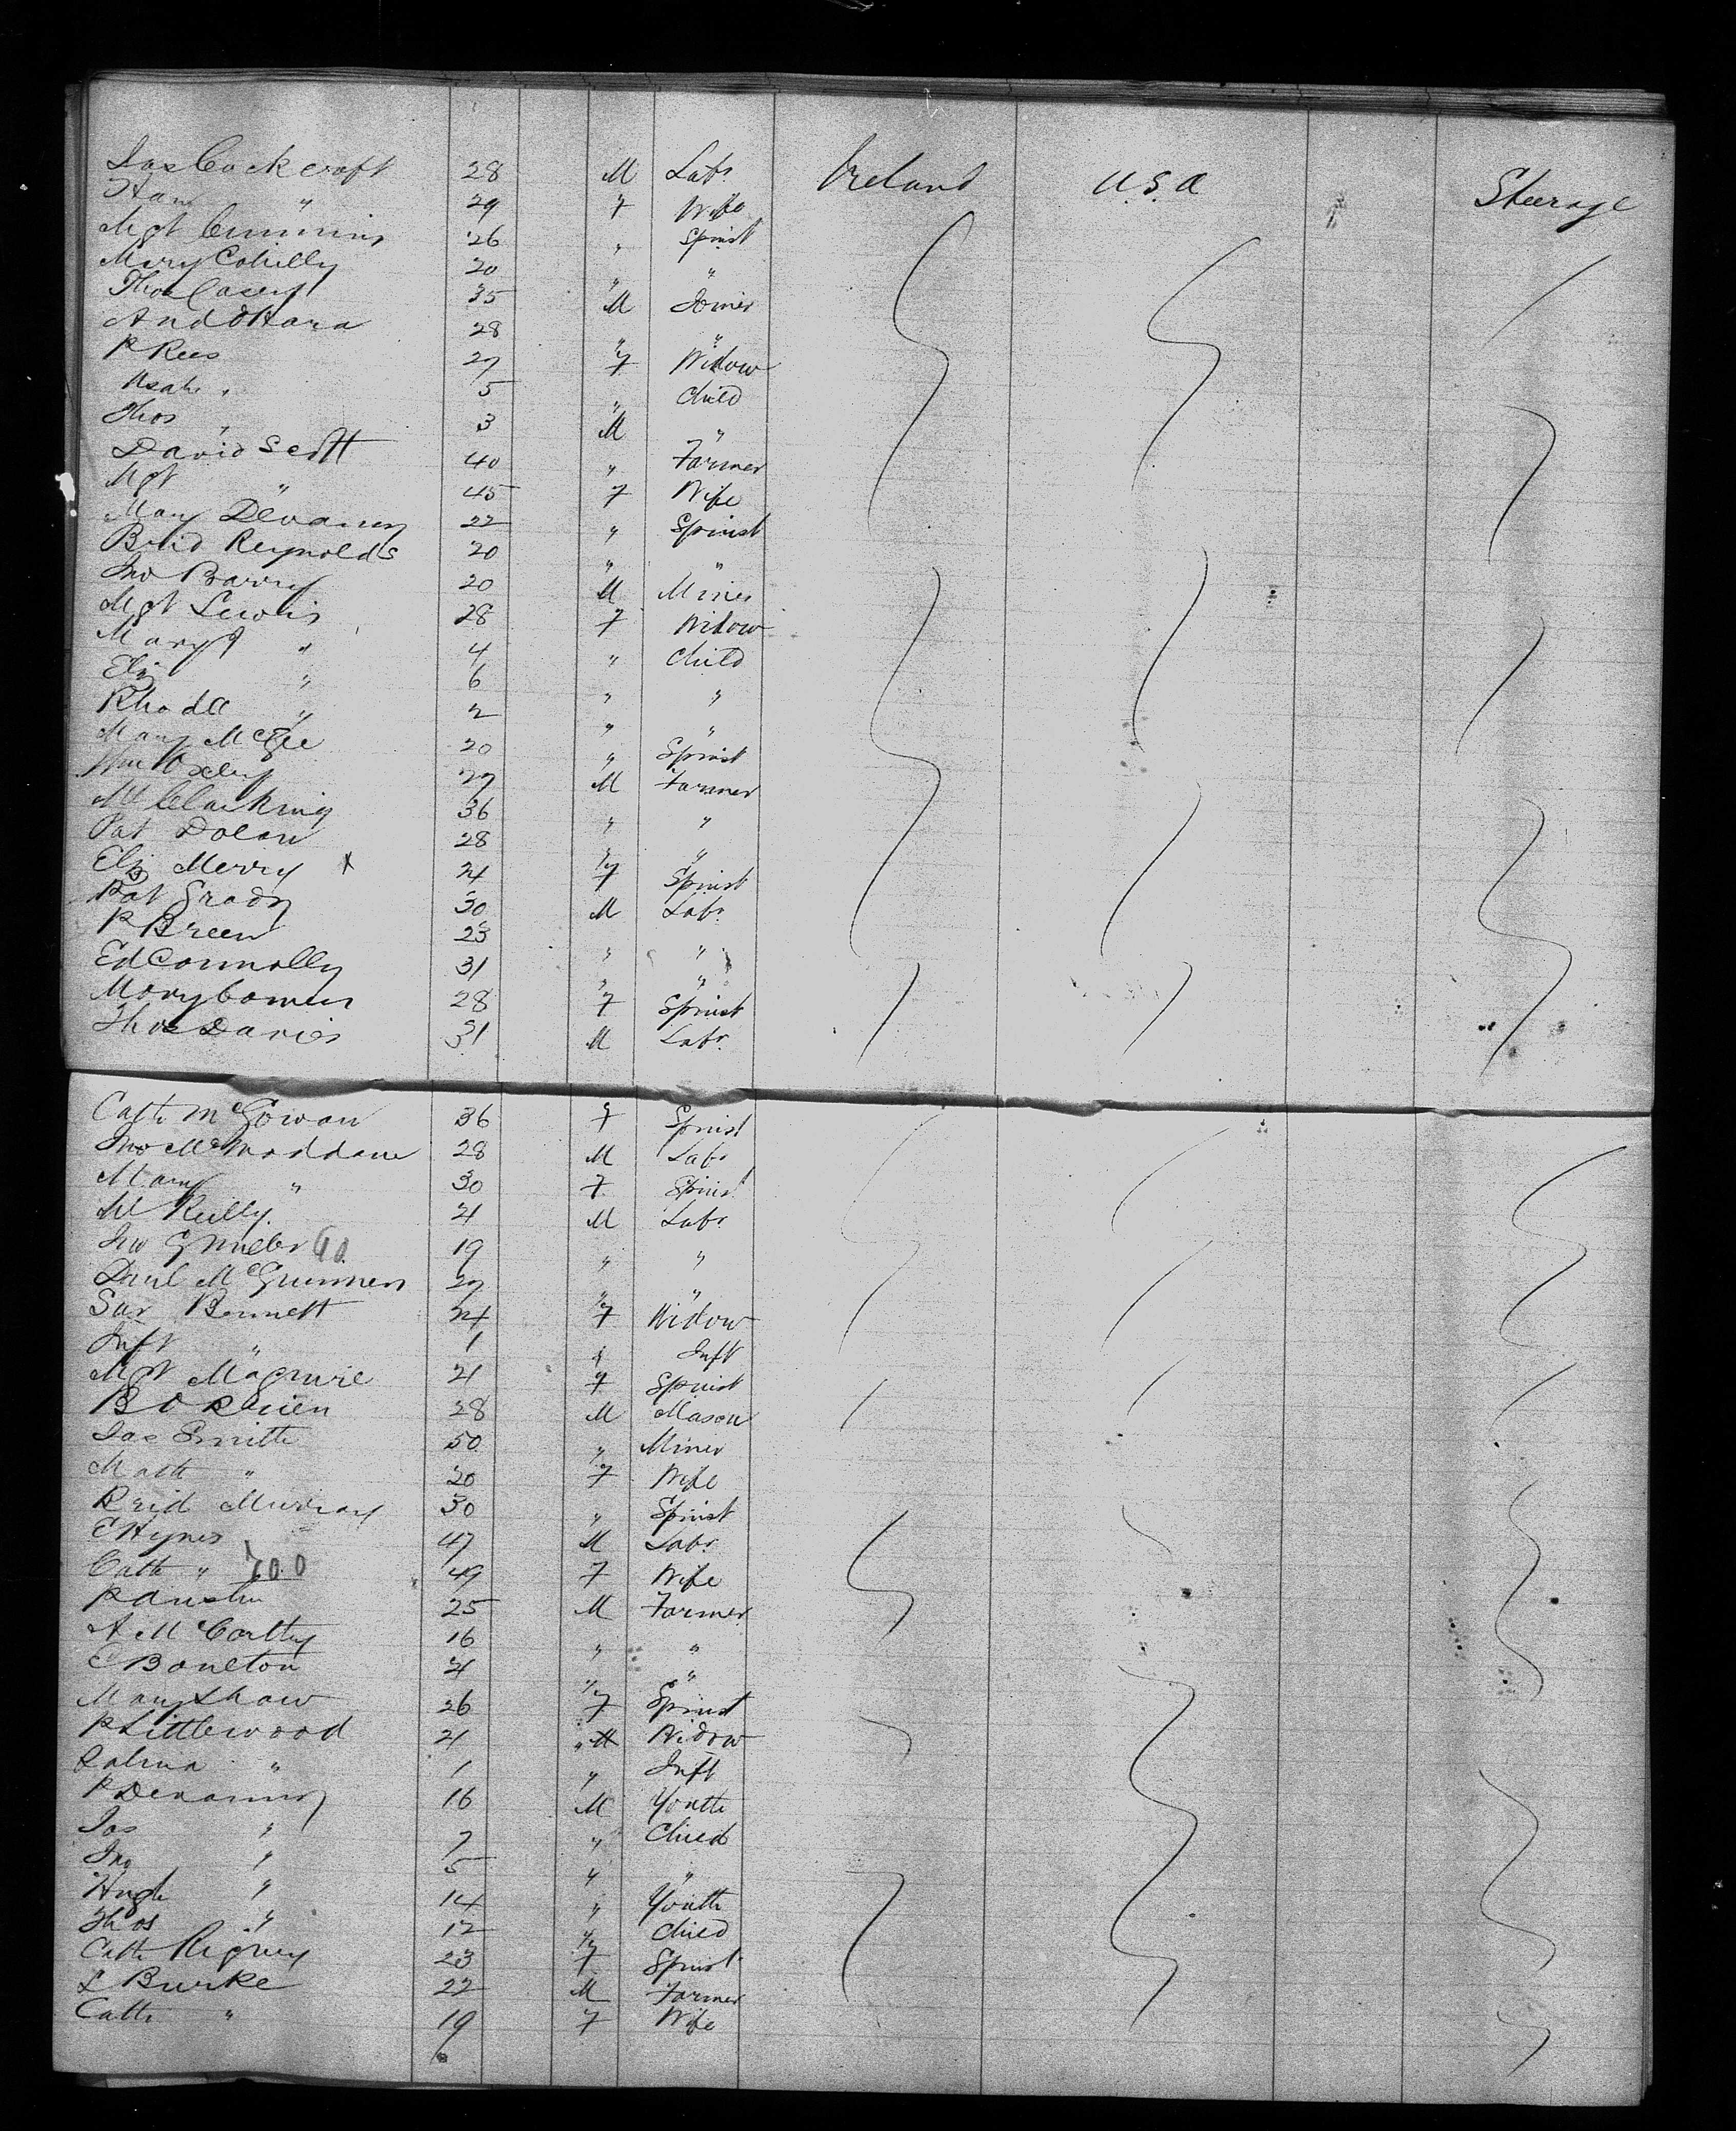 Jas Cockcroft 28 M Labr Ireland U.S.A Steerage
Han " 29 F Wife
Mgt Cummins 26 " Spinst
Mary Cohilly 20 " "
Thos Casey 35 M Joiner
And O'Hara 28 " "
P Rees 27 F Widow
" 5 " Child
Thos " 3 M "
David Scott 40 " Farmer
Mgt " 45 F Wife
Mary Devaney 22 " Spinst
Brid Reynolds 20 " "
Jno Barry 20 M Miner
Mgt Lewis 28 F Widow
Mary J " 4 " Child
Eliz " 6 " "
Rhoda " 2 " "
Mary McGee 20 " Spinst
Wm Oxley 27 M Farmer
36 " "
Pat Dolan 28 " "
Eliz Merry x 24 F Spinst
Pat Grady 30 M Labr
P Breen 23 " "
Ed Connolly 31 " "
Mary 28 F Spinst
Thos Davies 31 M Labr
Cath McGowan 36 F Spinst
Jno McMaddane 28 M Labr
Mary " 30 F Spinst
M Reilly 21 M Labr
Jno 19 " "
Danl McGuinness 27 " "
Sar Bennett 24 F Widow
Inft " 1 " Inft
Mgt Maguire 21 F Spinst
B O'Brien 28 M Mason
Jas Smith 50 " Miner
" 20 F Wife
Brid Murray 30 " Spinst
C Hynes 47 M Labr
Cath " 49 F Wife
P Austin 25 M Farmer
A McCarthy 16 " "
C Boulton 21 " "
Mary Shaw 26 F Spinst
P Littlewood 21 " Widow
Salina " 1 " Inft
P Devanney 16 M Youth
Jas " 7 " Child
Jno " 5 " "
Hugh " 14 " Youth
Thos " 12 " Child
Cath Rigney 23 F Spinst
L Burke 22 M Farmer
Cath " 19 F Wife